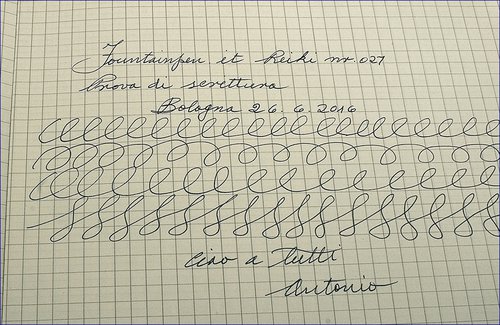 Fountainpen it Reiki nr. 027
Prova di scrittura
Bologna 26. 6. 2016
Ciao a tutti
Antonio